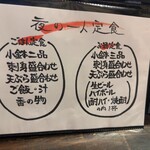 夜の一人定食
ごはん定食
小鉢二品
刺身盛合わせ
天ぷら盛合わせ
ご飯・汁
香の物
お酒定食
小鉢三品
刺身盛合わせ
天ぷら盛合わせ
生ビール
ハイボール